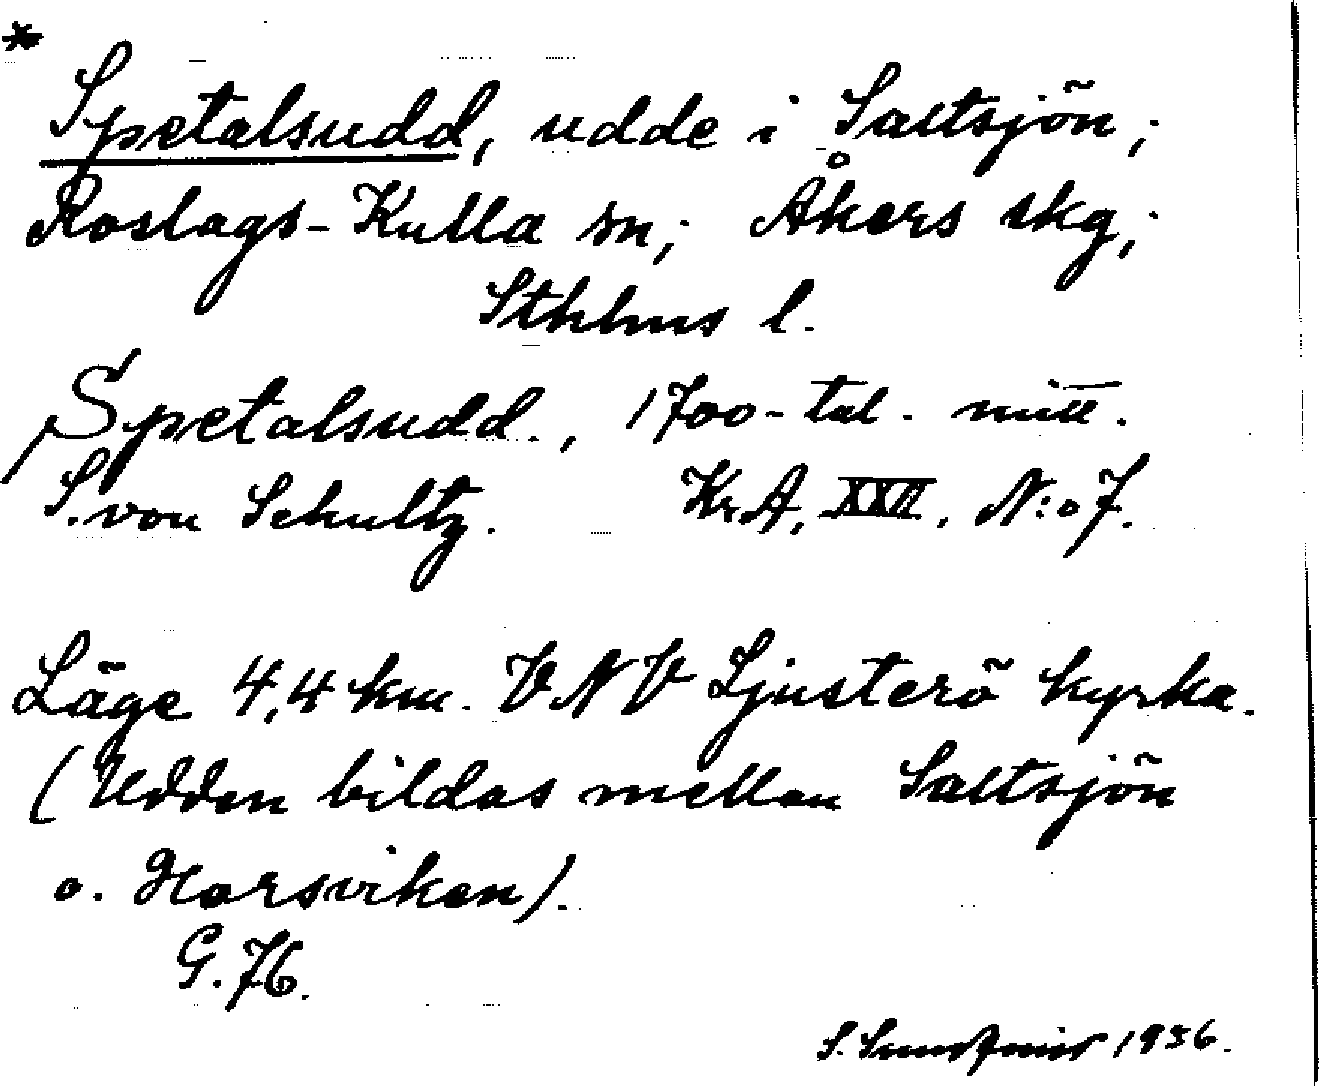 *
Spetalsudd, udde i Saltsjön;
Roslags-Kulla sn; Åkers skg;
Sthlms l.
Spetalsudd., 1700-tal. mitt.
S. von Schultz. Kr.A, XXII, N:o 7.
Läge 4,4 km. VNV Ljusterö kyrka.
(Udden bildas mellan Saltsjön
o. Harsviken).
G.
S. 1936.